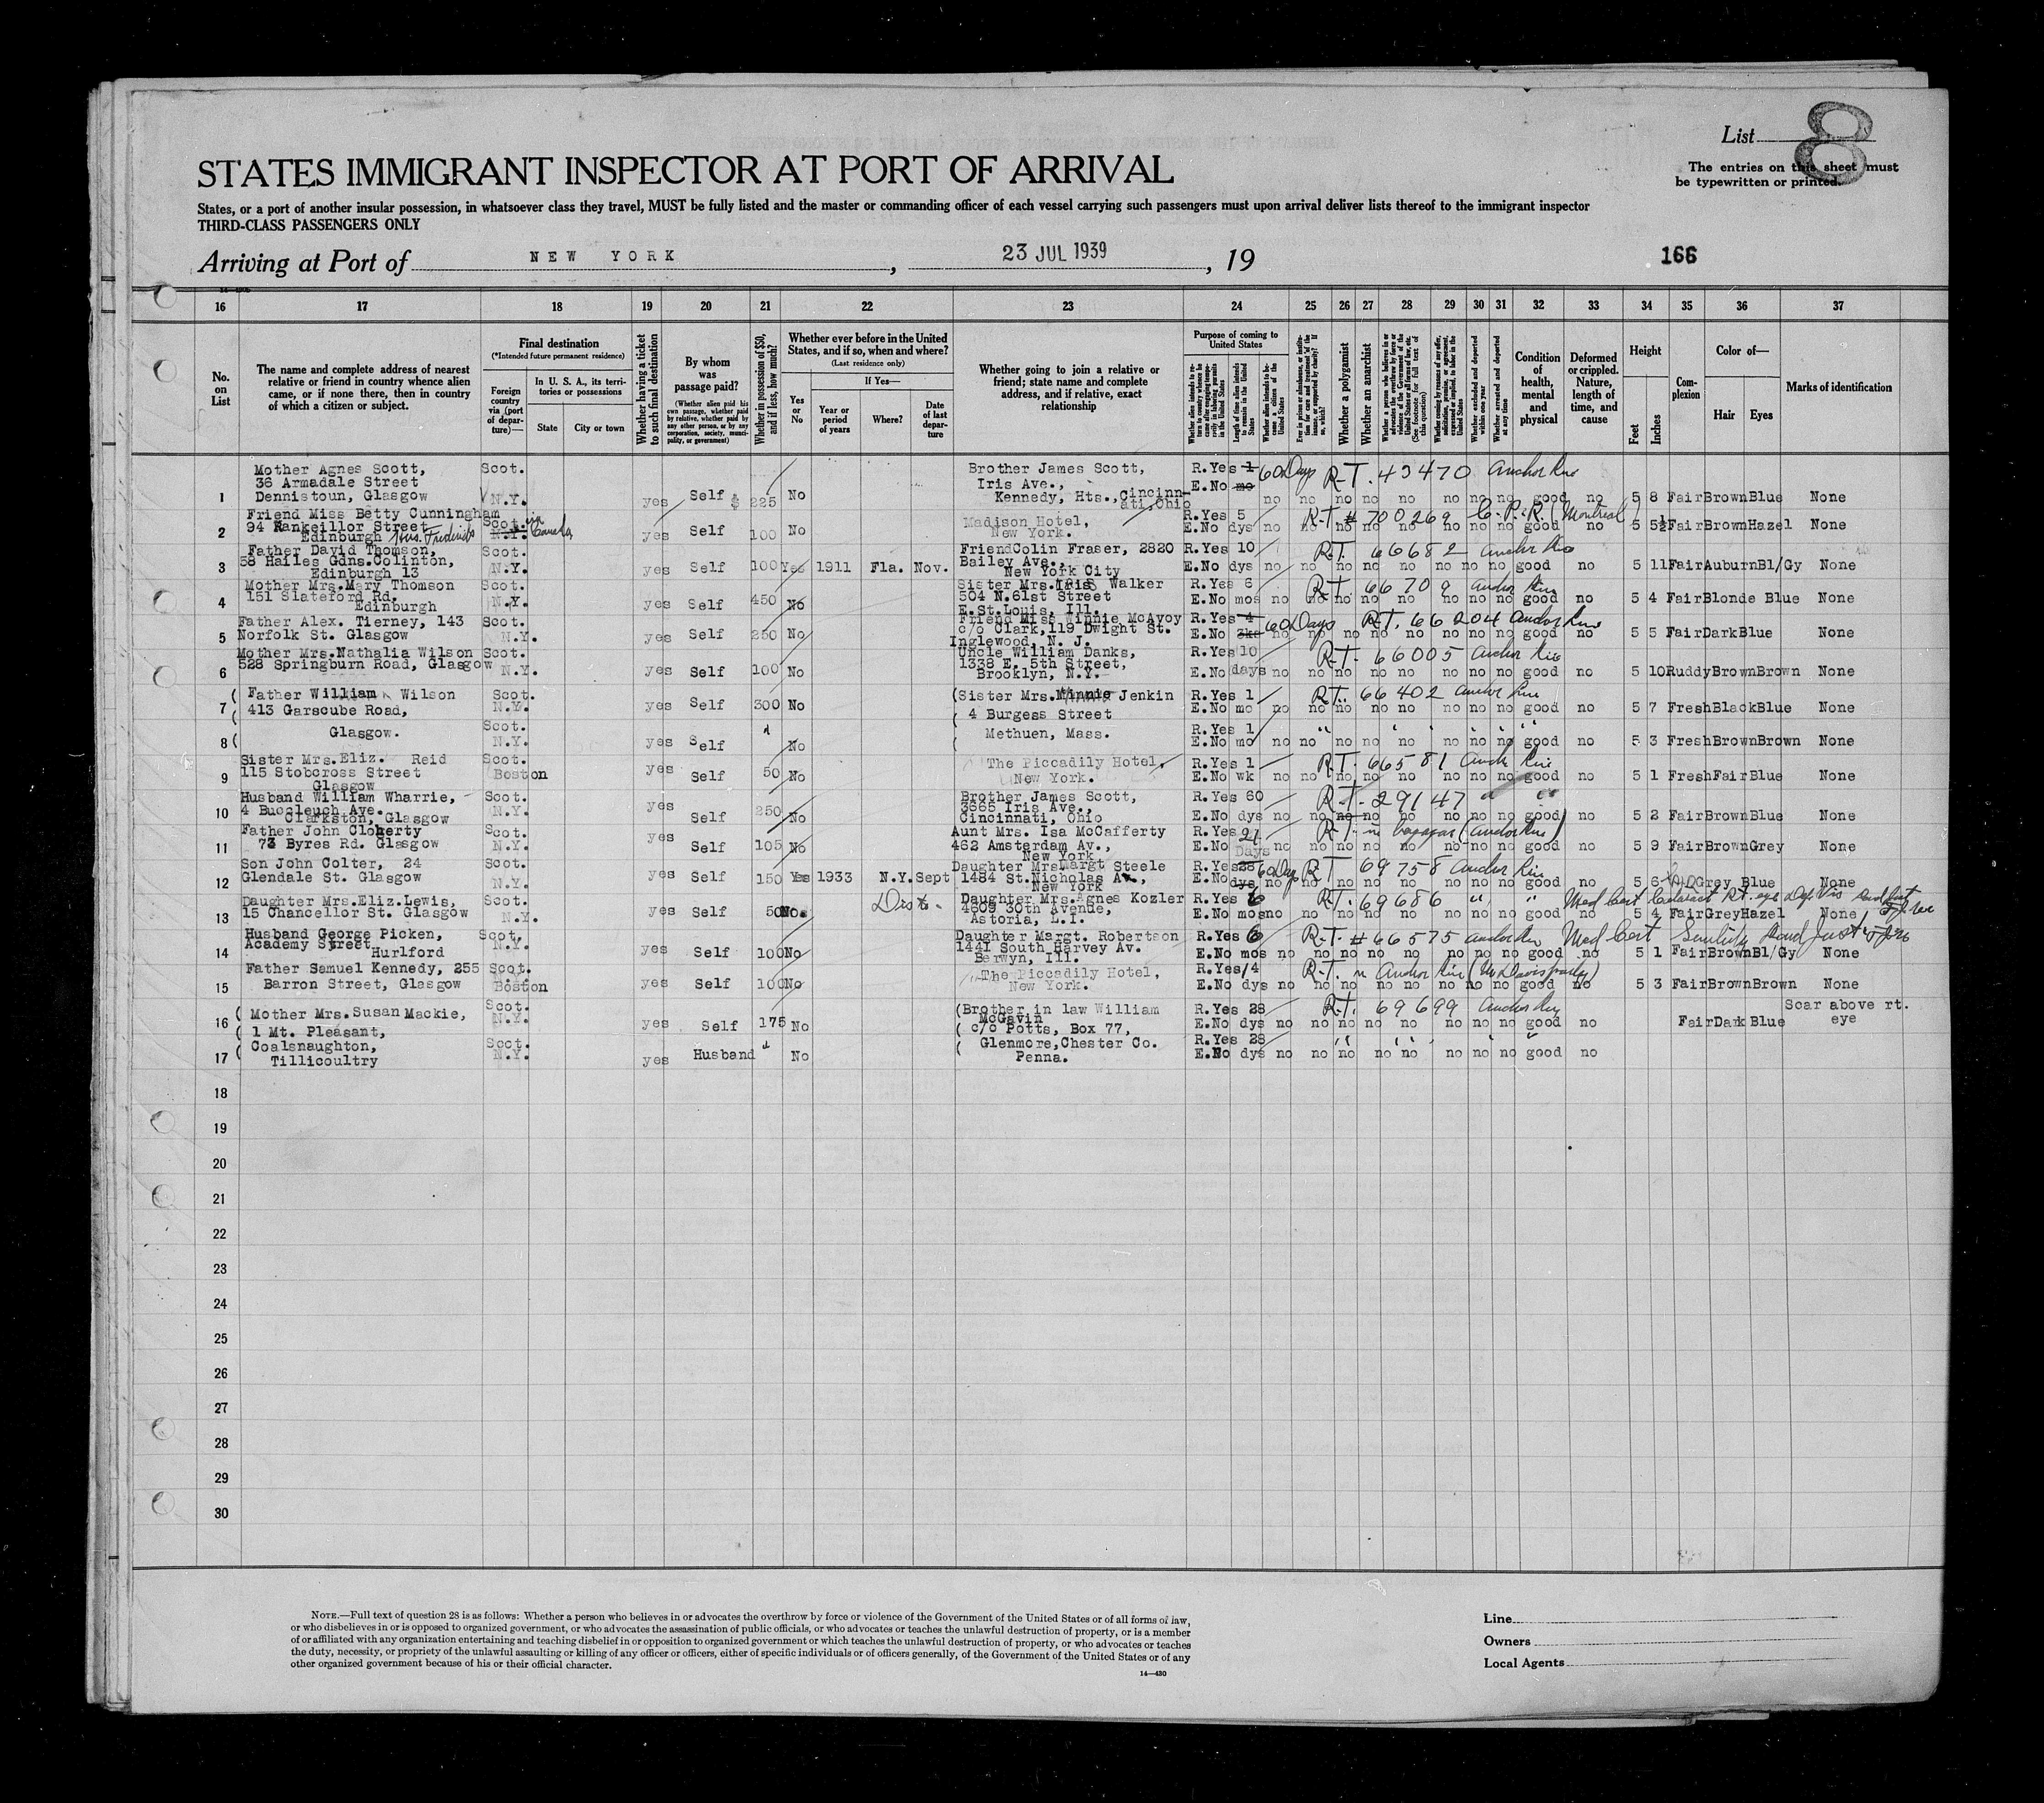 List 8
The entries on this sheet must
be typewritten or printed.
STATES IMMIGRANT INSPECTOR AT PORT OF ARRIVAL
States, or a port of another insular possession, in whatsoever class they travel, MUST be fully listed and the master or commanding officer of each vessel carrying such passengers must upon arrival deliver lists thereof to the immigrant inspector
THIRD-CLASS PASSENGERS ONLY
Arriving at Port of NEW YORK, 23 JUL 1939, 19
166
16 17 18 19 20 21 22 23 24 25 26 27 28 29 30 31 32 33 34 35 36 37
No. on List
The name and complete address of nearest
relative or friend in country whence alien
came, or if none there, then in country
of which a citizen or subject.
Final destination
(*Intended future permanent residence)
Foreign country via (port of departure)—
In U. S. A., its territories or possessions
State
City or town
Whether having a ticket to such final destination
By whom was passage paid?
(Whether alien paid his own passage, whether paid by relative, whether paid by any other person, or by any corporation, society, municipality, or government)
Whether in possession of $50, and if less, how much?
Whether ever before in the United States, and if so, when and where?
(Last residence only)
Yes or No
If Yes—
Year or period of years
Where?
Date of last departure
Whether going to join a relative or
friend; state name and complete
address, and if relative, exact
relationship
Purpose of coming to United States
Length of time alien intends to remain in the United States
Whether alien intends to become a citizen of the United States
Whether a polygamist
Whether an anarchist
Whether excluded and deported within one year
Whether arrested and deported at any time
Condition of health, mental and physical
Deformed or crippled. Nature, length of time, and cause
Height
Feet
Inches
Complexion
Color of—
Hair Eyes
Marks of identification
1 Mother Agnes Scott,
36 Armadale Street
Dennistoun, Glasgow
Scot. N.Y. yes Self $ 225 No
Brother James Scott,
Iris Ave.,
Kennedy, Hts., Cincinnati, Ohio
R.Yes 1 60 Days R-T. 43470 Anchor Line
E.No mo no no no no no no no no good no 5 8 Fair Brown Blue None
2 Friend Miss Betty Cunningham
94 Rankeillor Street
Edinburgh
Scot. via Canada N.Y. yes Self 100 No
Madison Hotel,
New York.
R.Yes 5 R-T # 700269 C.P.R. (Montreal)
E.No dys no no no no no no no no good no 5 5½ Fair Brown Hazel None
3 Father David Thomson,
58 Hailes Gdns. Colinton,
Edinburgh 13
Scot. N.Y. yes Self 100 Yes 1911 Fla. Nov.
Friend Colin Fraser, 2820
Bailey Ave.,
New York City
R.Yes 10 R-T. 66682 Anchor Line
E.No dys no no no no no no no no good no 5 11 Fair Auburn Bl/Gy None
4 Mother Mrs. Mary Thomson
151 Slateford Rd.
Edinburgh
Scot. N.Y. yes Self 450 No
Sister Mrs. Iris Walker
504 N. 61st Street
E. St. Louis, Ill.
R.Yes 6 R-T 66709 Anchor Line
E.No mos no no no no no no no no good no 5 4 Fair Blonde Blue None
5 Father Alex. Tierney, 143
Norfolk St. Glasgow
Scot. N.Y. yes Self 250 No
Friend Miss Winnie McAvoy
c/o Clark, 119 Dwight St.
Inglewood, N. J.
R.Yes 60 Days R-T. 66204 Anchor Line
E.No no no no no no no no no good no 5 5 Fair Dark Blue None
6 Mother Mrs. Nathalia Wilson
528 Springburn Road, Glasgow
Scot. N.Y. yes Self 100 No
Uncle William Danks,
1338 E. 5th Street,
Brooklyn, N.Y.
R.Yes 10 R-T. 66005 Anchor Line
E.No days no no no no no no no no good no 5 10 Ruddy Brown Brown None
7 Father William Wilson
413 Garscube Road,
Scot. N.Y. yes Self 300 No
(Sister Mrs. Minnie Jenkin
4 Burgess Street
R.Yes 1 R.T. 66402 Anchor Line
E.No mo no no no no no no no no good no 5 7 Fresh Black Blue None
8 Glasgow.
Scot. N.Y. yes Self " No
Methuen, Mass.
R.Yes 1 " " " " "
E.No mo no no no no no no no no good no 5 3 Fresh Brown Brown None
9 Sister Mrs. Eliz. Reid
115 Stobcross Street
Glasgow
Scot. Boston yes Self 50 No
The Piccadily Hotel,
New York.
R.Yes 1 R-T. 66581 Anch Line
E.No wk no no no no no no no no good no 5 1 Fresh Fair Blue None
10 Husband William Wharrie,
4 Buccleuch Ave.
Clarkston, Glasgow
Scot. N.Y. yes Self 250 No
Brother James Scott,
3665 Iris Ave.,
Cincinnati, Ohio
R.Yes 60 R-T. 29147 " "
E.No dys no no no no no no no no good no 5 2 Fair Brown Blue None
11 Father John Cloherty
73 Byres Rd. Glasgow
Scot. N.Y. yes Self 105 No
Aunt Mrs. Isa McCafferty
462 Amsterdam Av.,
New York
R.Yes 21 R-T- in baggage (Anchor Line)
E.No Days no no no no no no no no good no 5 9 Fair Brown Grey None
12 Son John Colter, 24
Glendale St. Glasgow
Scot. N.Y. yes Self 150 Yes 1933 N.Y. Sept
Daughter Mrs Margt Steele
1484 St. Nicholas Av.,
New York
R.Yes 60 Days R-T 69758 Anchor Line
E.No dys no no no no no no no no good no 5 8 Grey Blue None
13 Daughter Mrs. Eliz. Lewis,
15 Chancellor St. Glasgow
Scot. N.Y. yes Self 50 No.
Daughter Mrs. Agnes Kozler
4609 30th Avenue,
Astoria, L.I.
R.Yes 6 R-T. 69686 " " Med Cert Cataract Rt. eye Def Vis
E.No mos no no no no no no no no good no 5 4 Fair Grey Hazel None
14 Husband George Picken,
Academy Street
Hurlford
Scot. N.Y. yes Self 100 No
Daughter Margt. Robertson
1441 South Harvey Av.
Berwyn, Ill.
R.Yes 6 R-T. # 66575 Anchor Line Med Cert Senility
E.No mos no no no no no no no no good no 5 1 Fair Brown Bl/Gy None
15 Father Samuel Kennedy, 255
Barron Street, Glasgow
Scot. Boston yes Self 100 No
The Piccadily Hotel,
New York.
R.Yes 14 R-T. in Anchor Line (Mr Davis party)
E.No dys no no no no no no no no good no 5 3 Fair Brown Brown None
16 (Mother Mrs. Susan Mackie,
(1 Mt. Pleasant,
Scot. N.Y. yes Self 175 No
(Brother in law William
McGavin
(c/o Potts, Box 77,
R.Yes 28 R-T. 69699 Anchor Line
E.No dys no no no no no no no no good no Fair Dark Blue Scar above rt.
eye
17 (Coalsnaughton,
Tillicoultry
Scot. N.Y. yes Husband " No
(Glenmore, Chester Co.
Penna.
R.Yes 28 " " " "
E.No dys no no no no no no no no good no
18
19
20
21
22
23
24
25
26
27
28
29
30
NOTE.—Full text of question 28 is as follows: Whether a person who believes in or advocates the overthrow by force or violence of the Government of the United States or of all forms of law,
or who disbelieves in or is opposed to organized government, or who advocates the assassination of public officials, or who advocates or teaches the unlawful destruction of property, or is a member
of or affiliated with any organization entertaining and teaching disbelief in or opposition to organized government or which teaches the unlawful destruction of property, or who advocates or teaches
the duty, necessity, or propriety of the unlawful assaulting or killing of any officer or officers, either of specific individuals or of officers generally, of the Government of the United States or of any
other organized government because of his or their official character.
14—430
Line
Owners
Local Agents